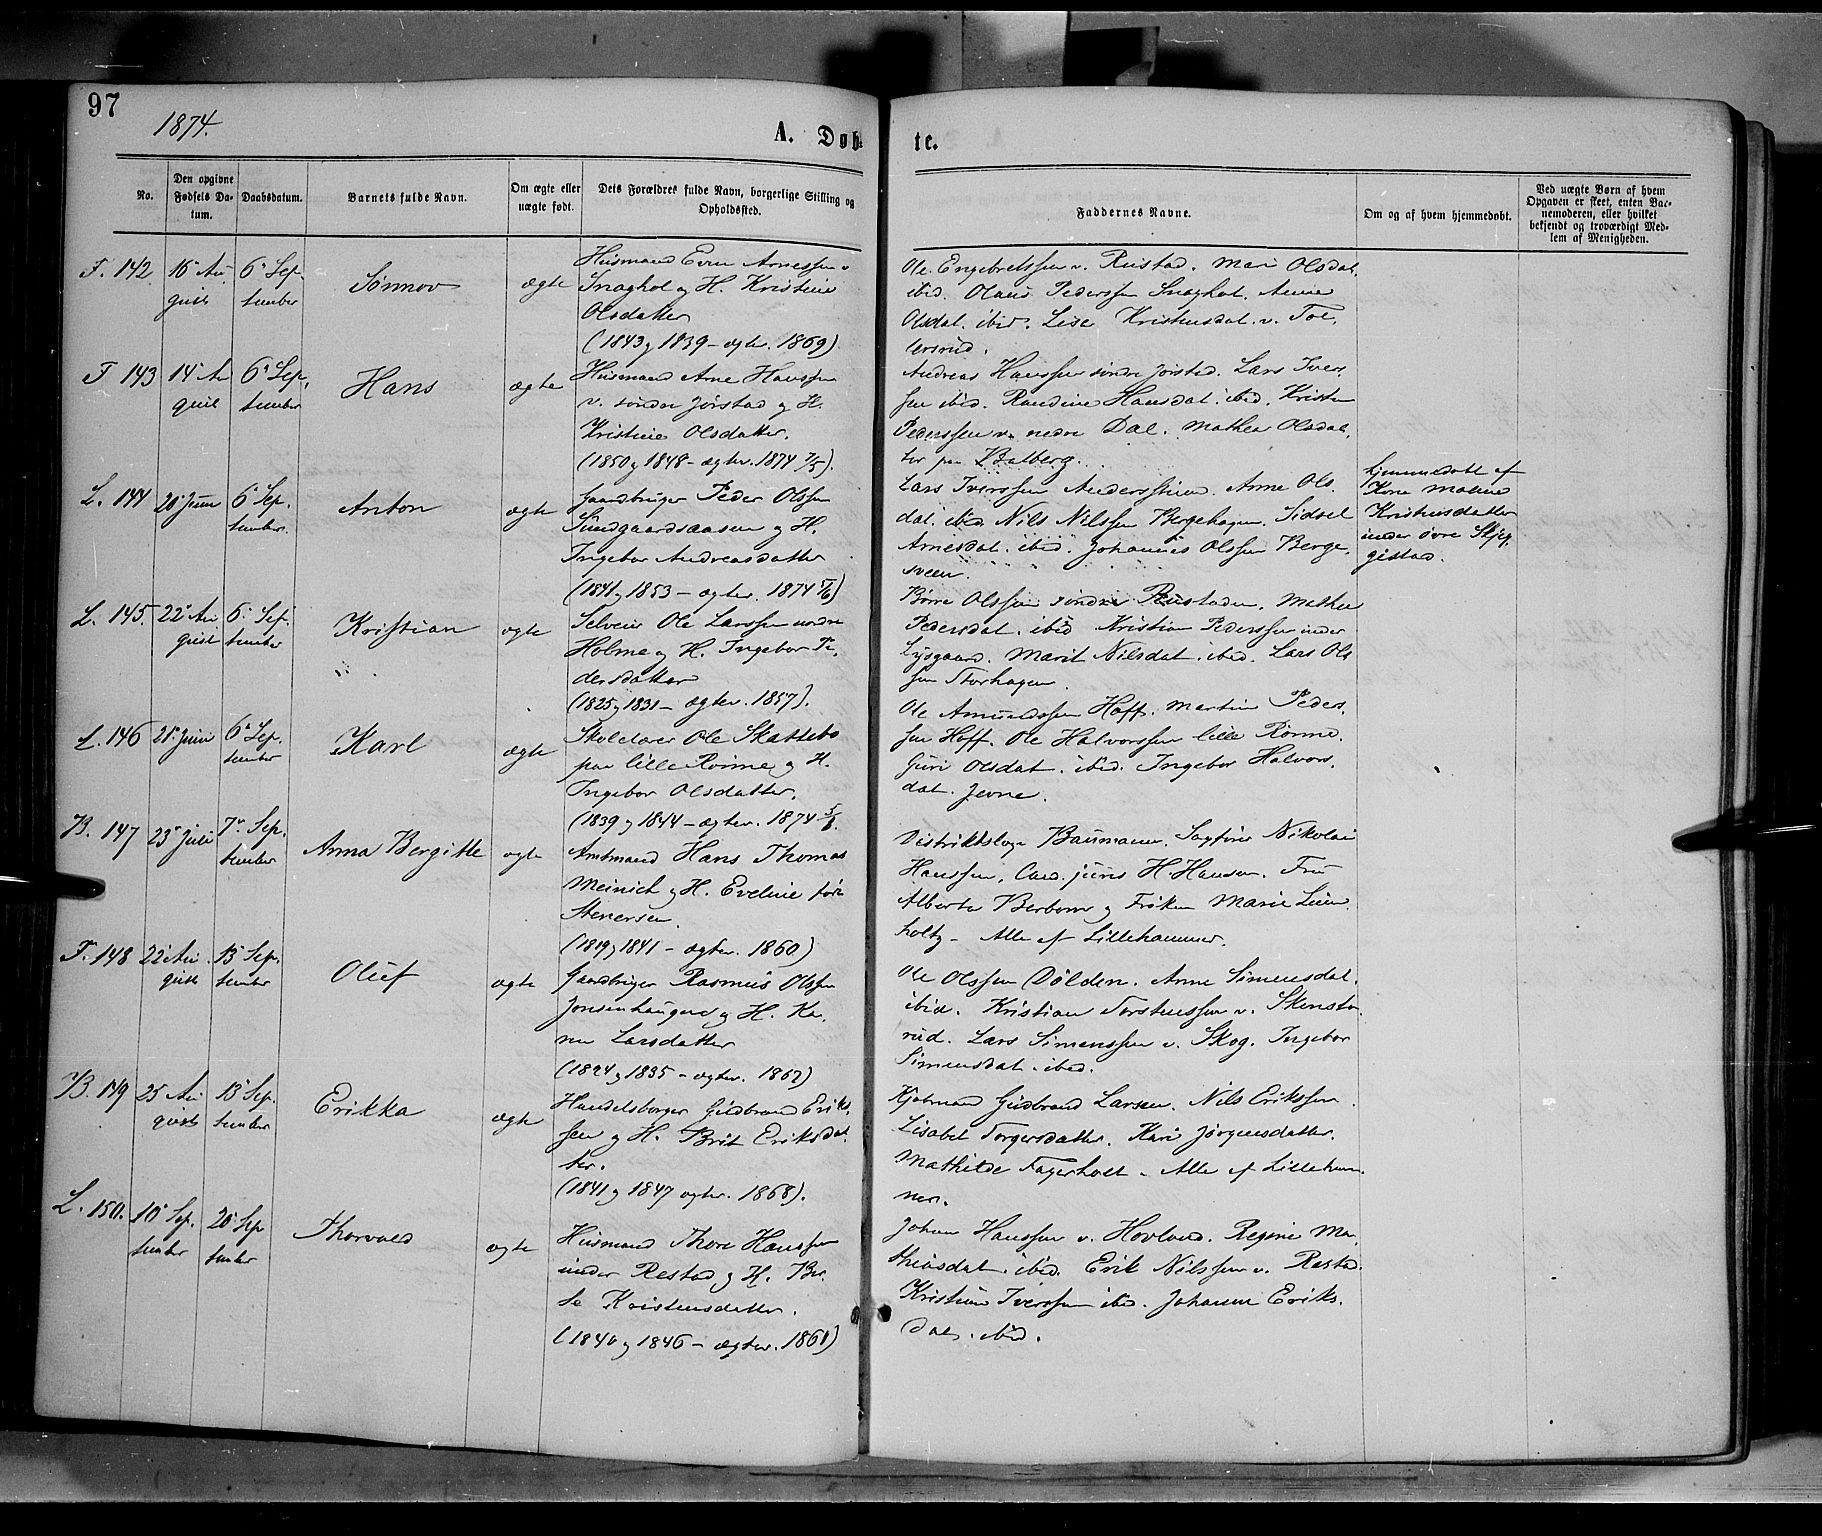 97
1874.
A. Døb-
te.
No.
Den opgivne
Fødsels Da-
tum.
Daabsdatum.
Barnets fulde Navn.
Om ægte eller
uægte født.
Dets Forældres fulde Navn, borgerlige Stilling og
Opholdssted.
Faddernes Navne.
Om og af hvem hjemmedøbt.
Ved uægte Børn af hvem
Opgaven er skeet, enten Bar-
nemoderen, eller hvilket
bekjendt og troværdigt Med-
lem af Menigheden.
F. 142
16 Au-
gust
6 Sep-
tember
Sønnov
ægte
Husmand Even Arnessen v
Snaghol og H. Kristine
Olsdatter
(1843 og 1839 – ægtev. 1869)
Ole Engebretssen v. Rustad. Mari Olsdat.
ibid. Olaus Pederssen Snaghol. Anne
Olsdat. ibid. Lise Kristensdat. v. Tol-
lersrud.
F 143
14 Au
gust
6 Sep.
tember
Hans
ægte
Husmand Arne Hanssen
v. søndre Jørstad og H.
Kristine Olsdatter.
(1850 og 1848 – ægtev. 1874 7/5).
Andreas Hanssen søndre Jørstad. Lars Iver-
sen ibid. Randine Hansdat. ibid. Kristen
Pederssen v. nedre Dal. Mathea Olsdat-
ter paa Balberg.
L. 144
20 Juni
6 Sep.
tember.
Anton
ægte
Gaardbruger Peder Olssen
Sundgaardsaasen og H.
Ingebor Andreasdatter
(1841 og 1853 – ægtev. 1874
Lars Iverssen Andersstuen. Anne Ols-
dat. ibid. Nils Nilssen Bergehagen. Sidsel
Arnesdat. ibid. Johannes Olssen Berge-
sveen.
hjemmedøbt af
Kone Malene
Kristensdatter
under øvre Skjeg-
gestad.
L. 145.
22 Au
gust
6 Sep.
tember
Kristian
ægte
Selveier Ole Larssen nordre
Holme og H. Ingebor Pe-
dersdatter
(1825 og 1831 – ægtev. 1857).
Børre Olssen søndre Rustaden. Mathea
Pedersdat. ibid Kristian Pederssen under
Lysgaard. Marit Nilsdat. ibid. Lars Ols
sen Storhagen.
L. 146
21 Juni
6 Sep.
tember
Karl
ægte
Skolelærer Ole Skattebo
paa lille Rønne og H.
Ingebor Olsdatter.
(1839 og 1844 – ægtev. 1874
Ole Amundssen Hoff. Martin Peders-
sen Hoff. Ole Halvorssen lille Rønne.
Guri Olsdat. ibid. Ingebor Halvors.
dat. Jevne.
B. 147
23 Juli
7 Sep.
tember
Anna Bergitte
ægte
Amtmand Hans Thomas
Meinich og H. Eveline født
Stenersen
(1819 og 1841 – ægtev. 1860)
Distriktslæge Baumann. Sagfører Nikolai
Hanssen, Cand. juris H. Hansen. Fru
Alberta Berbom og Frøken Marie Lein
holtz – Alle af Lillehammer.
F. 148
22 Au.
gust
13 Sep.
tember
Oluf
ægte
Gaardbruger Rasmus Olssen
Jonsenhaugen og H. Ka-
ren Larsdatter
(1824 og 1835 – ægtev. 1862)
Ole Olssen Dølden. Anne Simensdat.
ibid. Kristian Torstenssen v. Skensta-
rud. Lars Simenssen v. Skog. Ingebor
Simensdat. ibid.
B. 149
25 Au
gust
13 Sep.
tember
Erikka
ægte
Handelsborger Gudbrand Eriks-
sen og H. Brit Eriksdat-
ter.
(1841 og 1847 ægtev. 1868).
Kjøbmand Gudbrand Larsen. Nils Erikssen
Lisabet Torgersdatter. Kari Jørgensdatter.
Mathilde Fagerholt – Alle af Lilleham-
mer.
L. 150.
10 Sep.
tember
20 Sep
tember
Thorvald
ægte
Husmand Thore Hanssen
under Restad og H. Be-
te Kristensdatter.
(1840 og 1846 – ægtev. 1861)
Johan Hanssen v. Hovland. Regine Ma-
thiasdat. ibid. Erik Nilssen v. Restad
Kristian Iverssen ibid. Johanne Eriks.
dat. ibid.